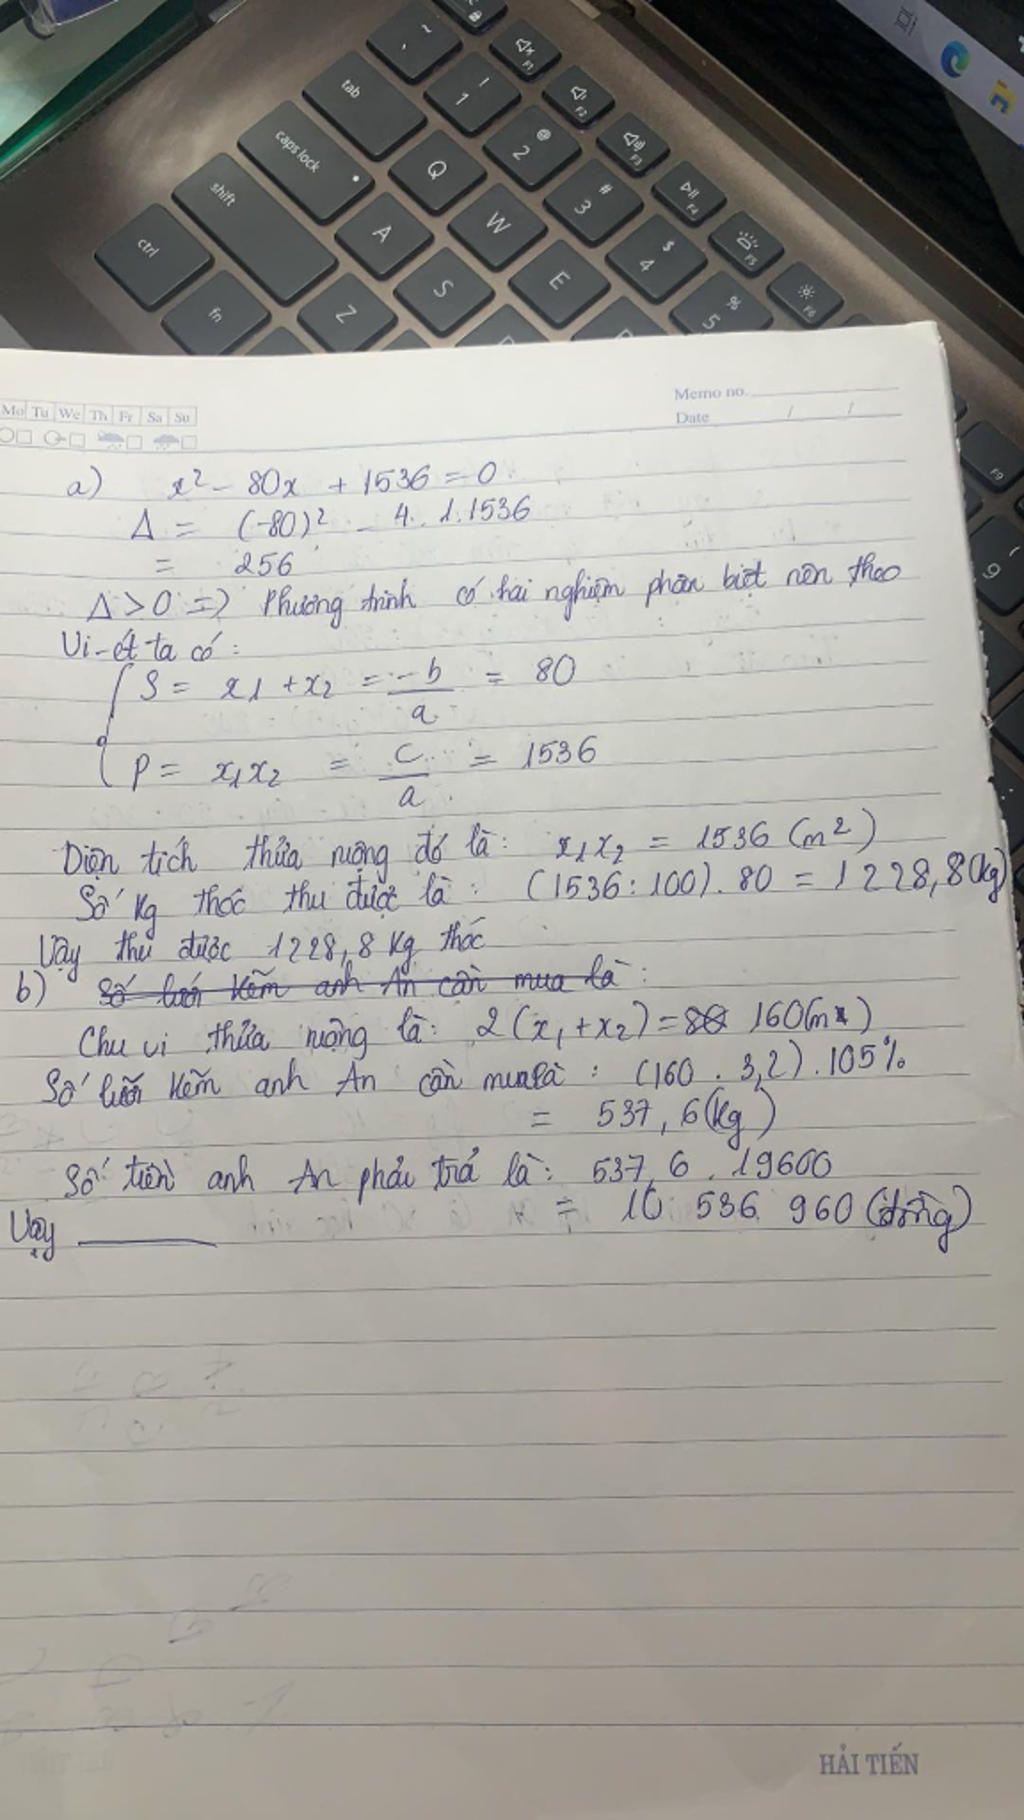 ~
`
tab
!
1
F1
F2
F3
F4
F5
F6
caps lock
Q
@
2
#
3
$
4
%
5
shift
A
W
E
ctrl
fn
Z
S
F9
9
Mo Tu We Th Fr Sa Su
Memo no.
Date / /
a) x² - 80x + 1536 = 0
Δ = (-80)² - 4. 1. 1536
= 256
Δ > 0 => Phương trình có hai nghiệm phân biệt nên theo
Vi-ét ta có:
S = x₁ + x₂ = -b/a = 80
P = x₁x₂ = c/a = 1536
Diện tích thửa ruộng đó là: x₁x₂ = 1536 (m²)
Số kg thóc thu được là: (1536:100).80 = 1228,8(kg)
Vậy thu được 1228,8 kg thóc
b) Số lưới kẽm anh An cần mua là:
Chu vi thửa ruộng là: 2(x₁+x₂) = 160(m)
Số lưới kẽm anh An cần mua là: (160.3,2).105%
= 537,6(kg)
Số tiền anh An phải trả là: 537,6.19600
= 10 536 960 (đồng)
Vậy
HẢI TIẾN